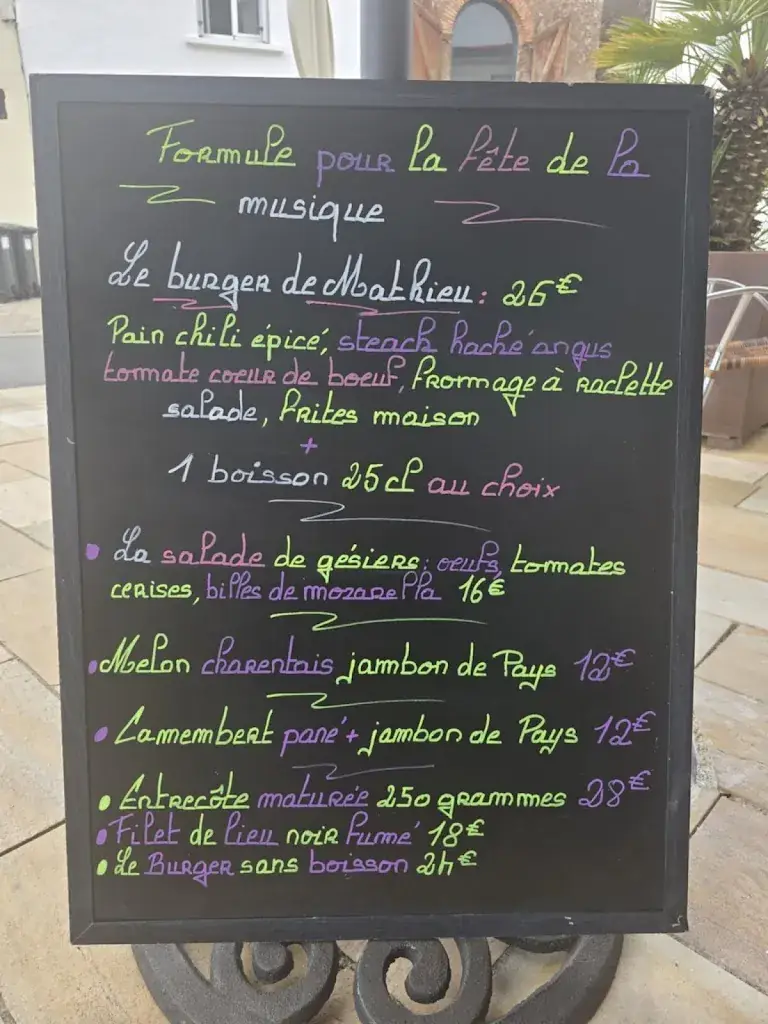 Formule pour la fête de la
musique
Le burger de Mathieu : 26€
Pain chili épicé, steack haché angus
tomate coeur de boeuf, fromage à raclette
salade, frites maison
+
1 boisson 25 cl au choix
• La salade de gésiers : oeufs, tomates
cerises, billes de mozarella 16€
• Melon charentais jambon de Pays 12€
• Camembert pané + jambon de Pays 12€
• Entrecôte maturée 250 grammes 28€
• Filet de lieu noir fumé 18€
• Le Burger sans boisson 24€